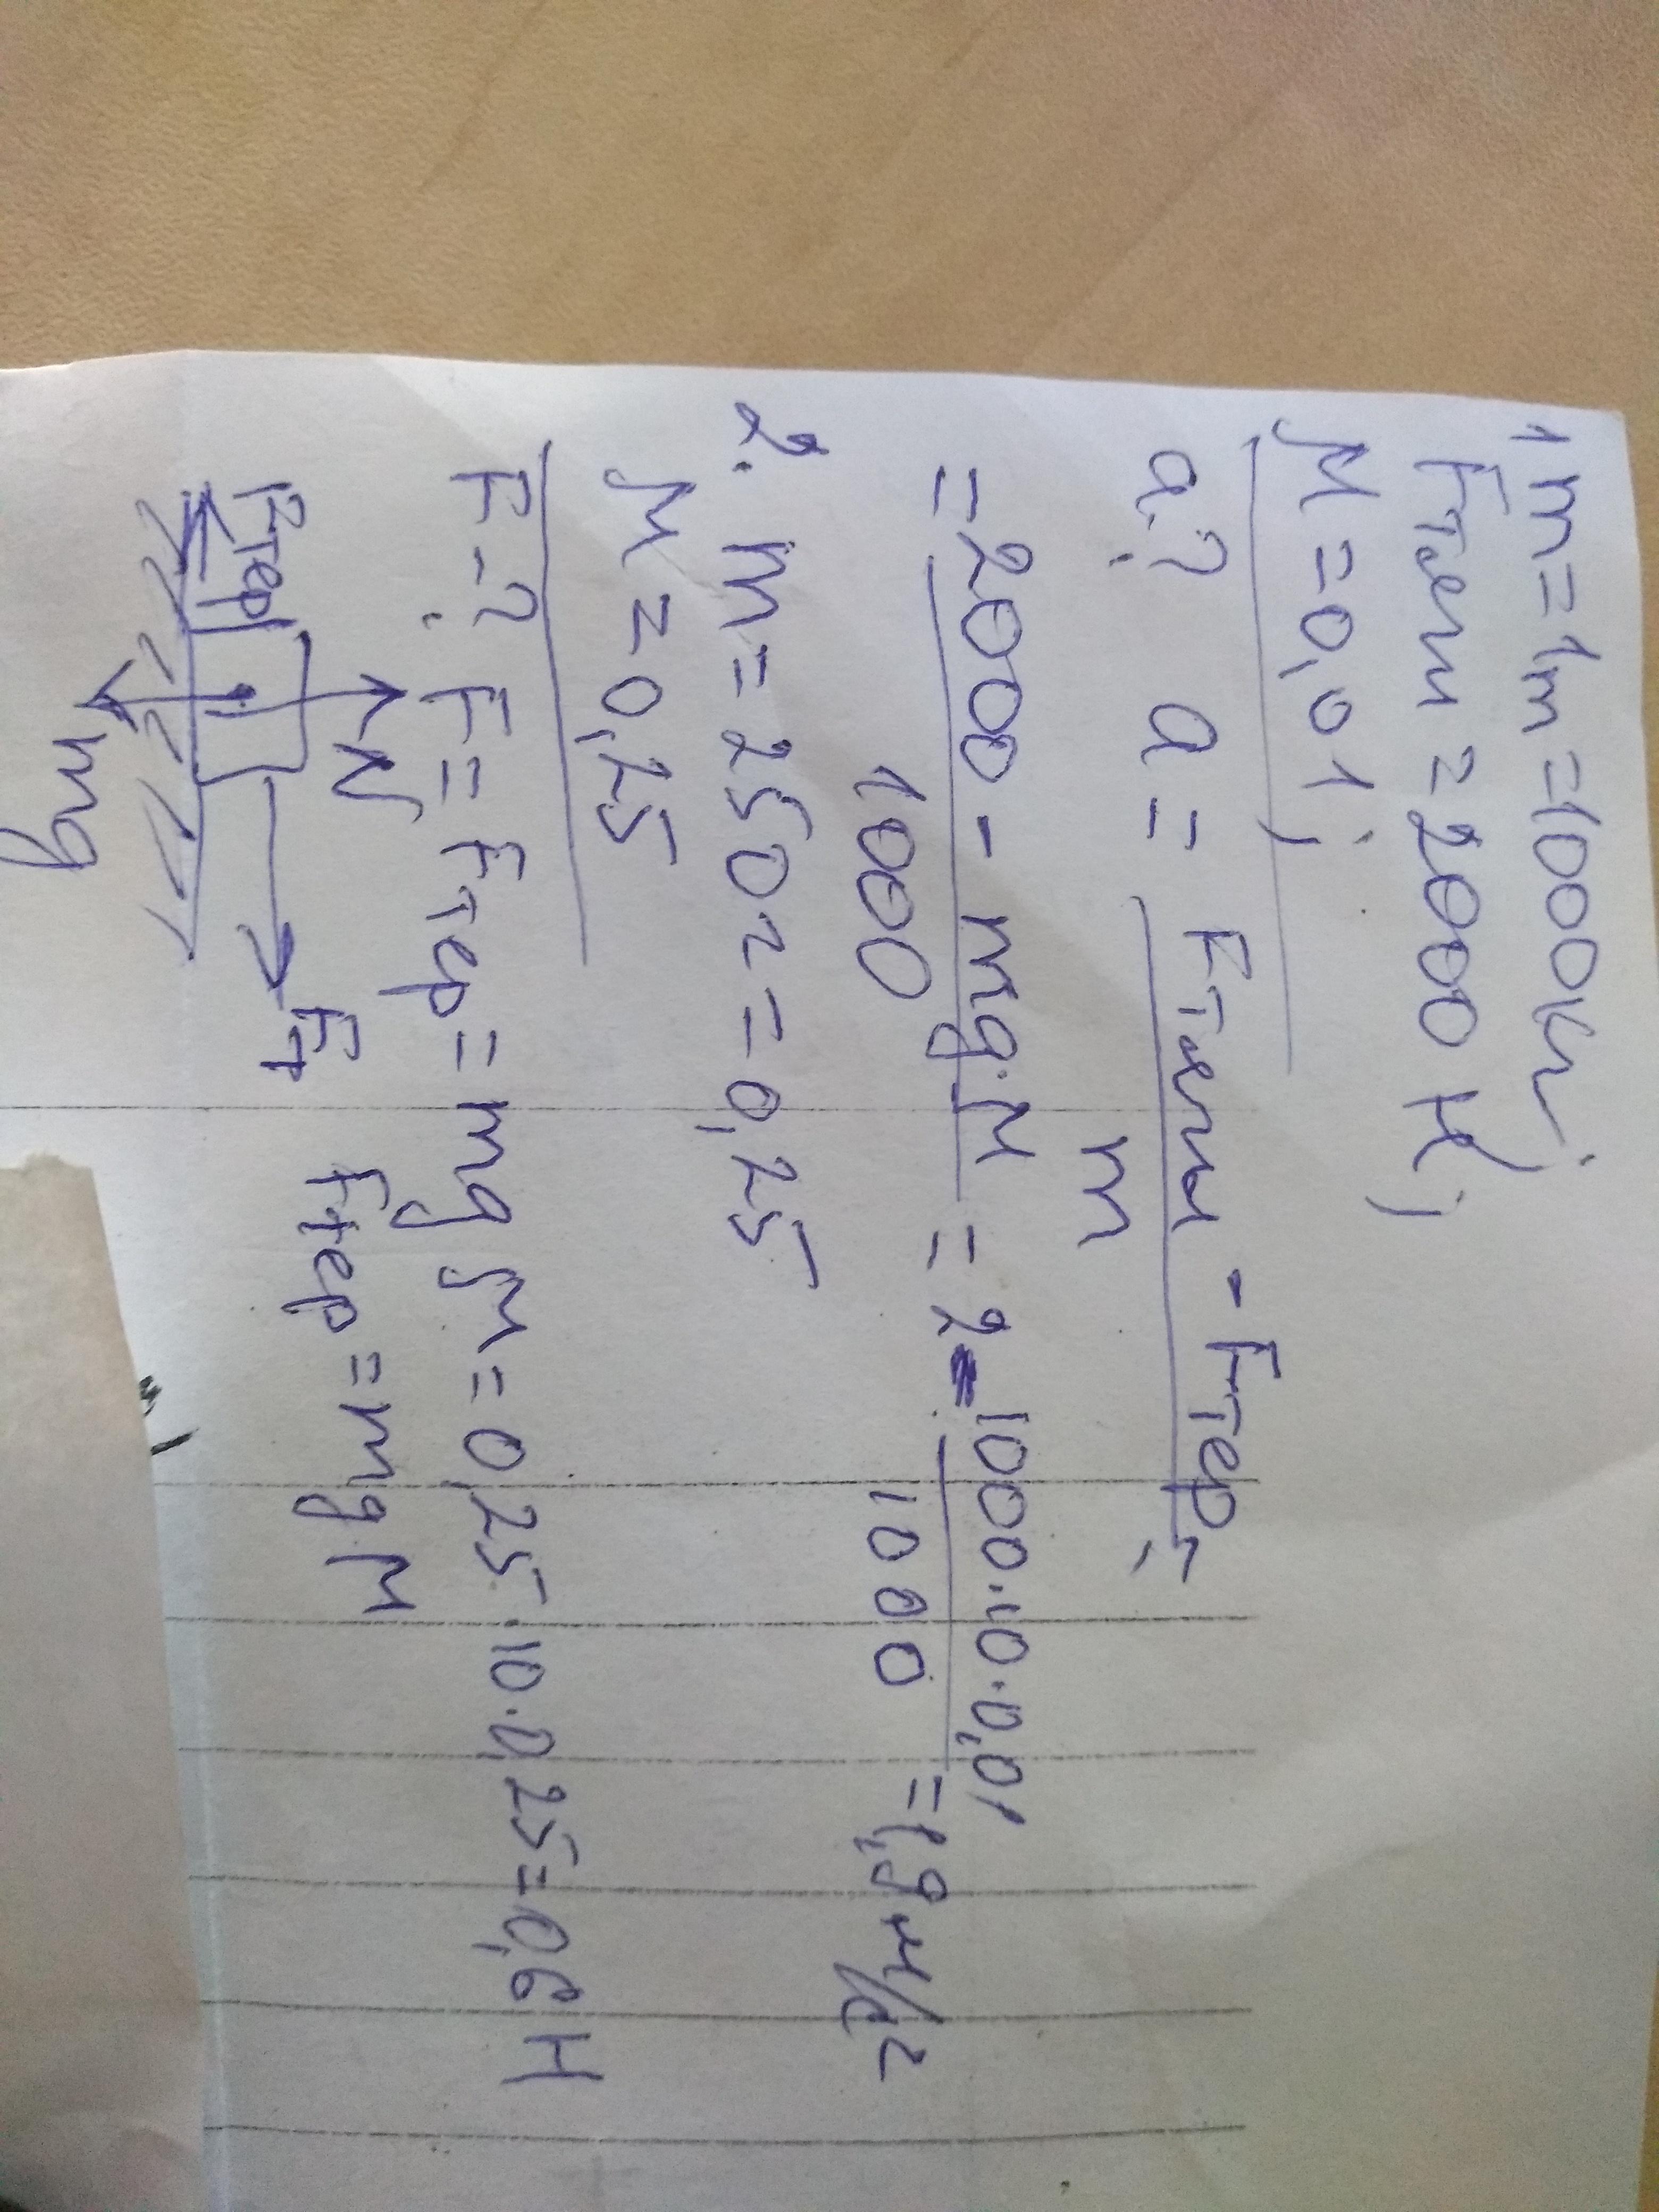 1 m = 1т = 1000кг;
Fтяги = 2000 Н;
μ = 0,01;
a? a = Fтяги - Fтер / m =
= 2000 - mg·μ / 1000 = 2 - 1000·10·0,01 / 1000 = 1,9 м/с²
2. m = 250г = 0,25
μ = 0,25
F-? F = Fтер = mg μ = 0,25·10·0,25 = 0,6 Н
N
Fтер Fт Fтер = mg·μ
mg